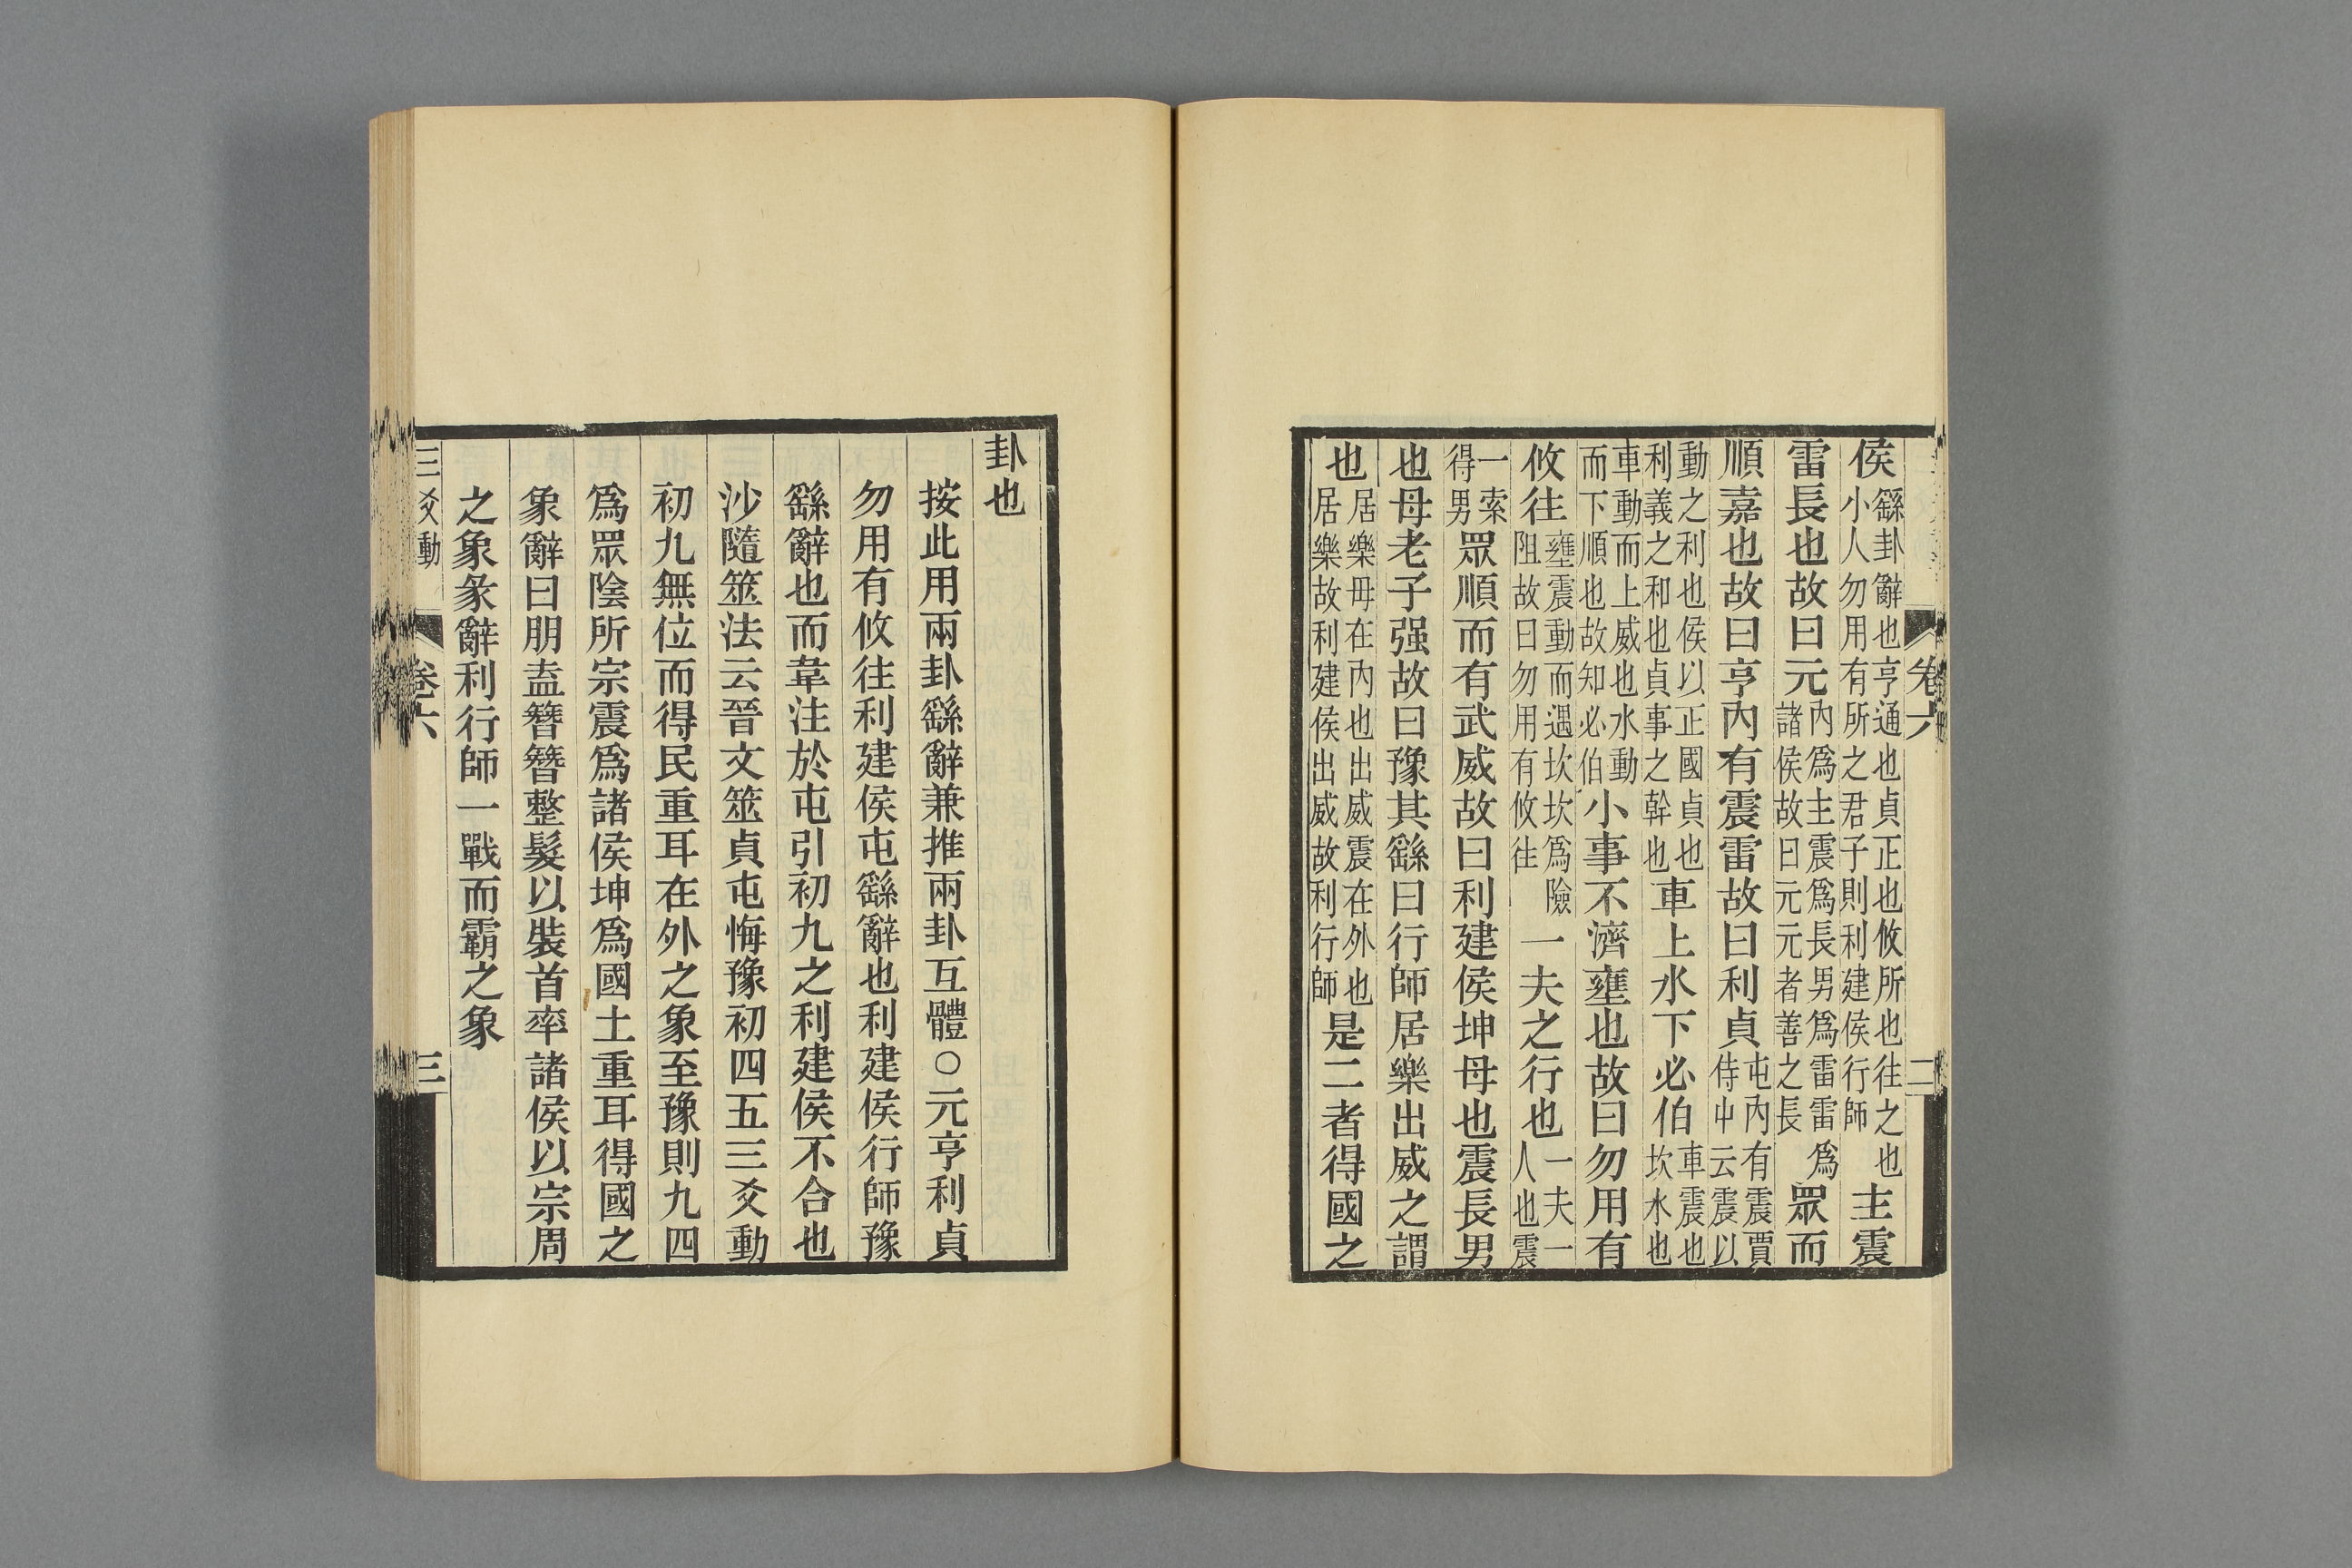 卷六 二
侯繇卦辭也亨通也貞正也攸所也往之也小人勿用有所之君子則利建侯行師主震
雷長也故曰元內爲主震爲長男爲雷雷爲諸侯故曰元元者善之長眾而
順嘉也故曰亨內有震雷故曰利貞屯內有震賈侍中云震以
動之利也侯以正國貞也利義之和也貞事之幹也車上水下必伯車震也坎水也
車動而上威也水動而下順也故知必伯小事不濟壅也故曰勿用有
攸往壅震動而遇坎坎爲險阻故曰勿用有攸往一夫之行也一夫一人也震
一索得男眾順而有武威故曰利建侯坤母也震長男
也母老子强故曰豫其繇曰行師居樂出威之謂
也居樂母在內也出威震在外也居樂故利建侯出威故利行師是二者得國之
卦也
按此用兩卦繇辭兼推兩卦互體○元亨利貞
勿用有攸往利建侯屯繇辭也利建侯行師豫
繇辭也而韋注於屯引初九之利建侯不合也
沙隨筮法云晉文筮貞屯悔豫初四五三爻動
初九無位而得民重耳在外之象至豫則九四
爲眾陰所宗震爲諸侯坤爲國土重耳得國之
象辭曰朋盍簪簪整髮以裝首率諸侯以宗周
之象彖辭利行師一戰而霸之象
三爻動 卷六 三